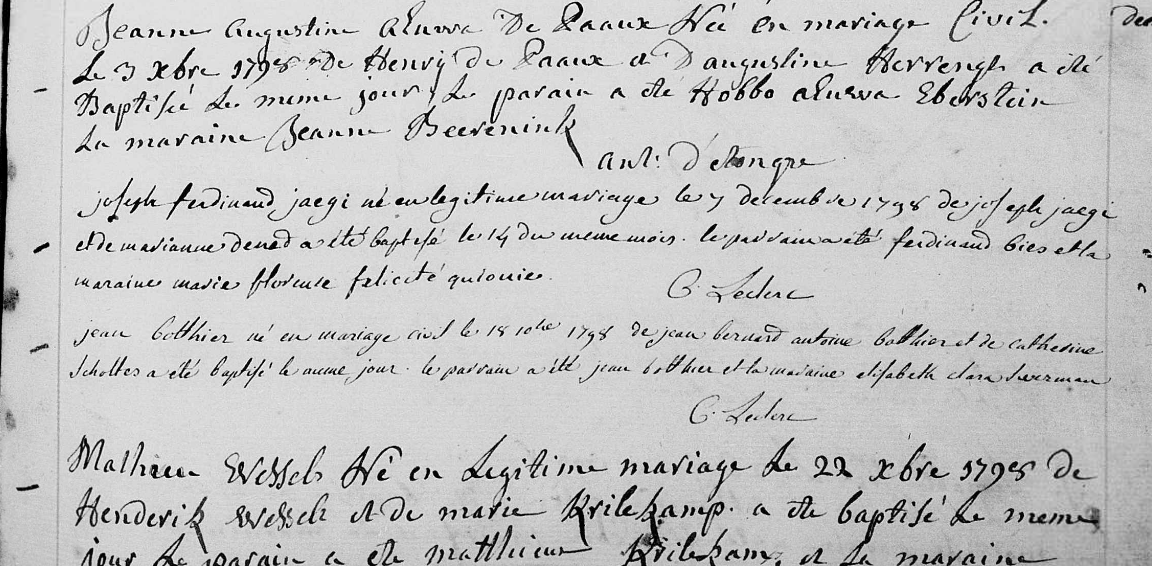 Jeanne augustine alurva De Paaux Née en mariage Civil.
Le 3 xbre 1798 De Henry de Paaux et D'augustine Herrengs a été
Baptisé Le meme jour, Le parain a été Hobbo alurva Eberstein
La maraine Jeanne Beerenink
ant: D'etongre
joseph ferdinand jaegi né en legitime mariage le 7 decembre 1798 de joseph jaegi
et de marianne dened a été baptisé le 14 du meme mois. le parrain a été ferdinand bies et la
maraine marie florence felicité quionie.
C. Leclerc
jean botthier né en mariage civil le 18 10bre 1798 de jean bernard antoine botthier et de catherine
Scholtes a été baptisé le meme jour. le parrain a été jean botthier et la maraine elisabeth clara
C. Leclerc
Mathieu Wessels Né en Legitime mariage Le 22 xbre 1798 de
Henderik Wessels et de marie Krilekamp. a ete baptisé Le meme
jour Le parain a ete matthieu Krilekamp et La maraine